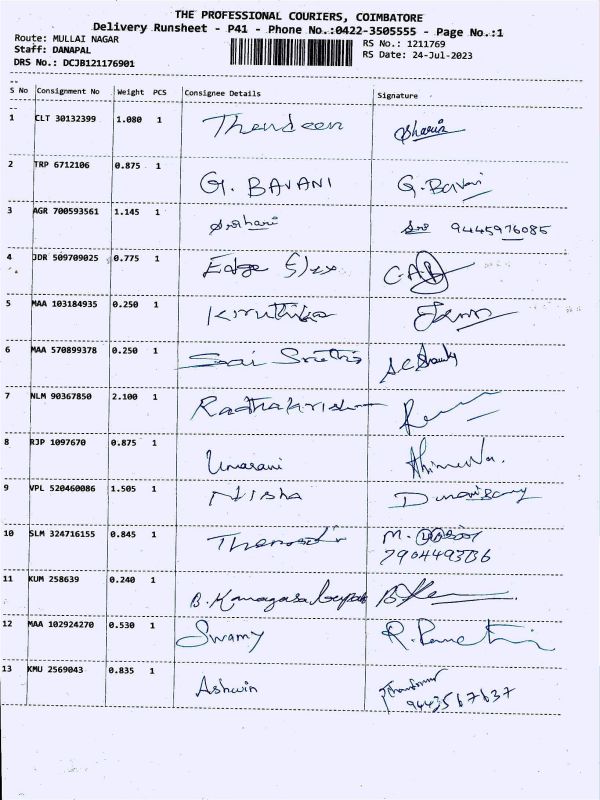 THE PROFESSIONAL COURIERS, COIMBATORE
Delivery Runsheet - P41 - Phone No.:0422-3505555 - Page No.:1
Route: MULLAI NAGAR
Staff: DANAPAL
DRS No.: DCJB121176901
RS No.: 1211769
RS Date: 24-Jul-2023
S No Consignment No Weight PCS Consignee Details Signature
1 CLT 30132399 1.080 1
2 TRP 6712106 0.875 1 G. BAVANI G. Bavani
3 AGR 700593561 1.145 1 Srihari Sri 9445976085
4 JDR 509709025 0.775 1 Edge
5 MAA 103184935 0.250 1 Kruthika
6 MAA 570899378 0.250 1 Sai
7 NLM 90367850 2.100 1 Radhakrishnan
8 RJP 1097670 0.875 1 Umarani
9 VPL 520460086 1.505 1 Nisha
10 SLM 324716155 0.845 1 M.
11 KUM 258639 0.240 1 B.
12 MAA 102924270 0.530 1 Swamy R.
13 KMU 2569043 0.835 1 Ashwin
9443567637